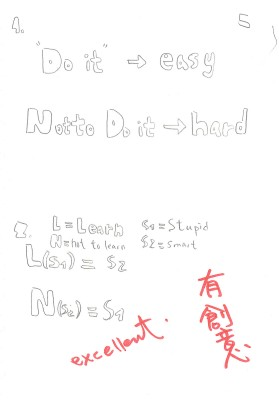 1. 5
"Do it" → easy
Not to Do it → hard
2. L = Learn S1 = Stupid
N = not to learn S2 = smart
L(S1) = S2
N(S2) = S1
excellent.
有創意